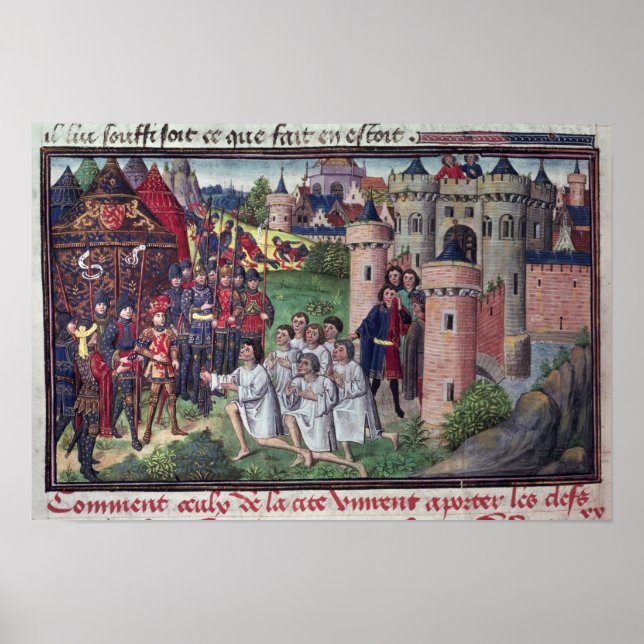 il luy souffisoit ce que fait en estoit.
Comment ceulx de la cite vinrent aporter les clefs